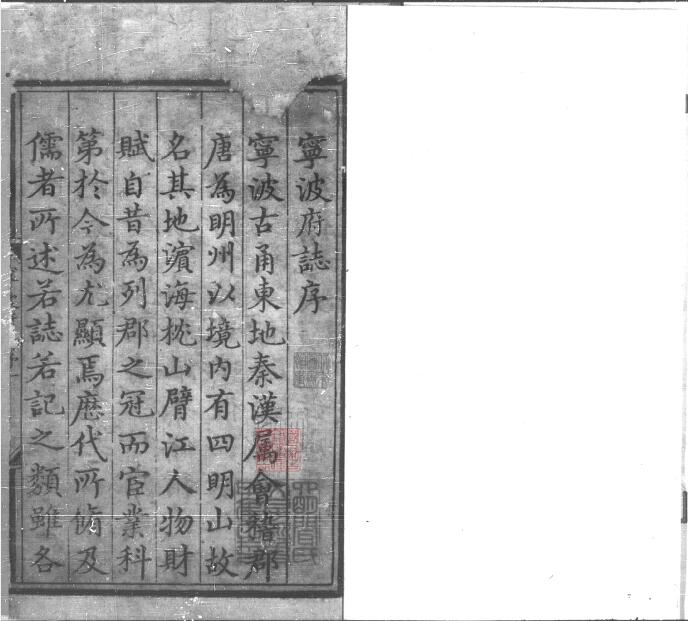 寧波府誌序
寧波古甬東地秦漢属會稽郡
唐為明州以境内有四明山故
名其地濵海枕山臂江人物財
賦自昔為列郡之冠而宦業科
第於今為尤顯焉歷代所脩及
儒者所述若誌若記之類雖各